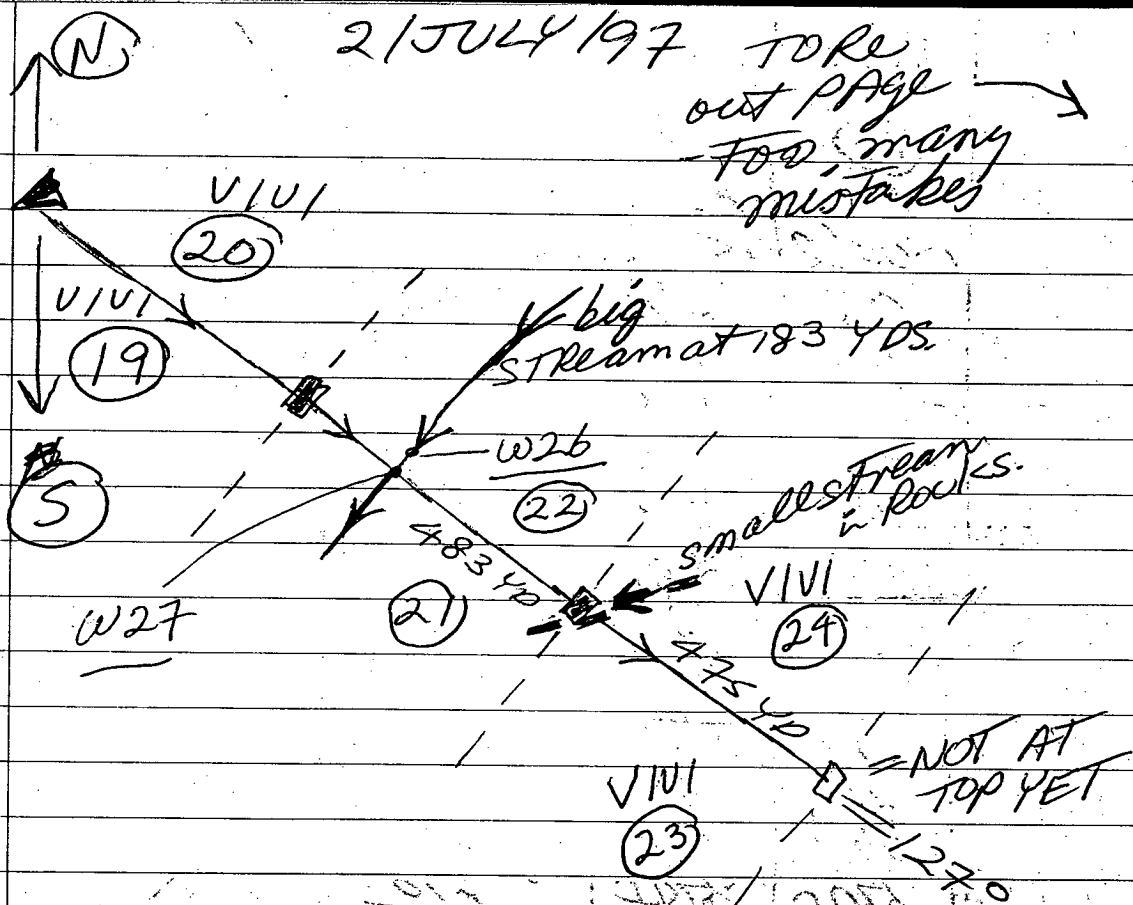 N
2/JULY/97
TORe
out PAge
-Too many
mistakes
VIVI
20
VIVI
19
big
STReam at 183 YDS.
S
W26
22
small stream
in Rocks.
483 YD
21
W27
VIVI
24
475 YD
= NOT AT
TOP YET
VIVI
23
1270